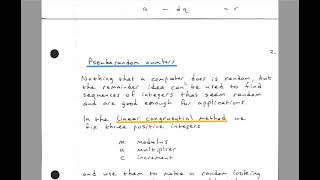 a - dq = r
2.
Pseudorandom numbers
Nothing that a computer does is random, but
the remainder idea can be used to find
sequences of integers that seem random
and are good enough for applications.
In the Linear congruential method we
fix three positive integers
m modulus
a multiplier
c increment
and use them to make a random looking